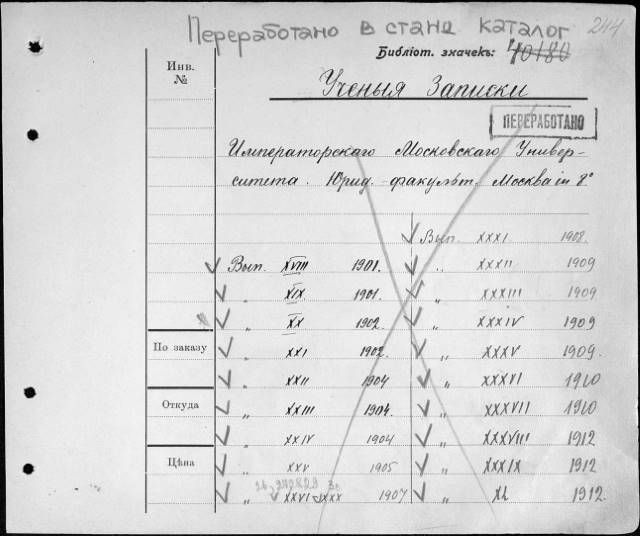 Переработано в станд каталог
244
Библіот. значекъ: 40180
Инв. №
Ученыя Записки
ПЕРЕРАБОТАНО
Императорскаго Московскаго Универ-
ситета. Юрид. факульт. Москва in 8°
Вып. XXXI. 1908.
Вып. XVIII 1901.
„ XXXII 1909
„ XIX 1901.
„ XXXIII 1909
„ XX 1902
„ XXXIV 1909
По заказу
„ XXI 1902.
„ XXXV 1909.
„ XXII 1904
„ XXXVI 1910
Откуда
„ XXIII 1904.
„ XXXVII 1910
„ XXIV 1904
„ XXXVIII 1912
Цѣна
„ XXV 1905
„ XXXIX 1912
„ XXVI-XXX 1907
„ XL 1912.